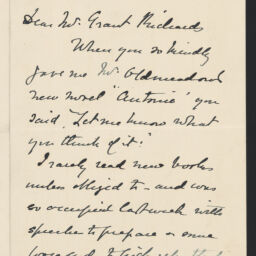 Dear Mr. Grant Richards
When you so kindly
gave me Mr Oldmeadow's
new novel "Antonio" you
said "Let me know what
you think of it".
I rarely read new books
unless obliged to - and was
so occupied last week with
speeches to prepare on some